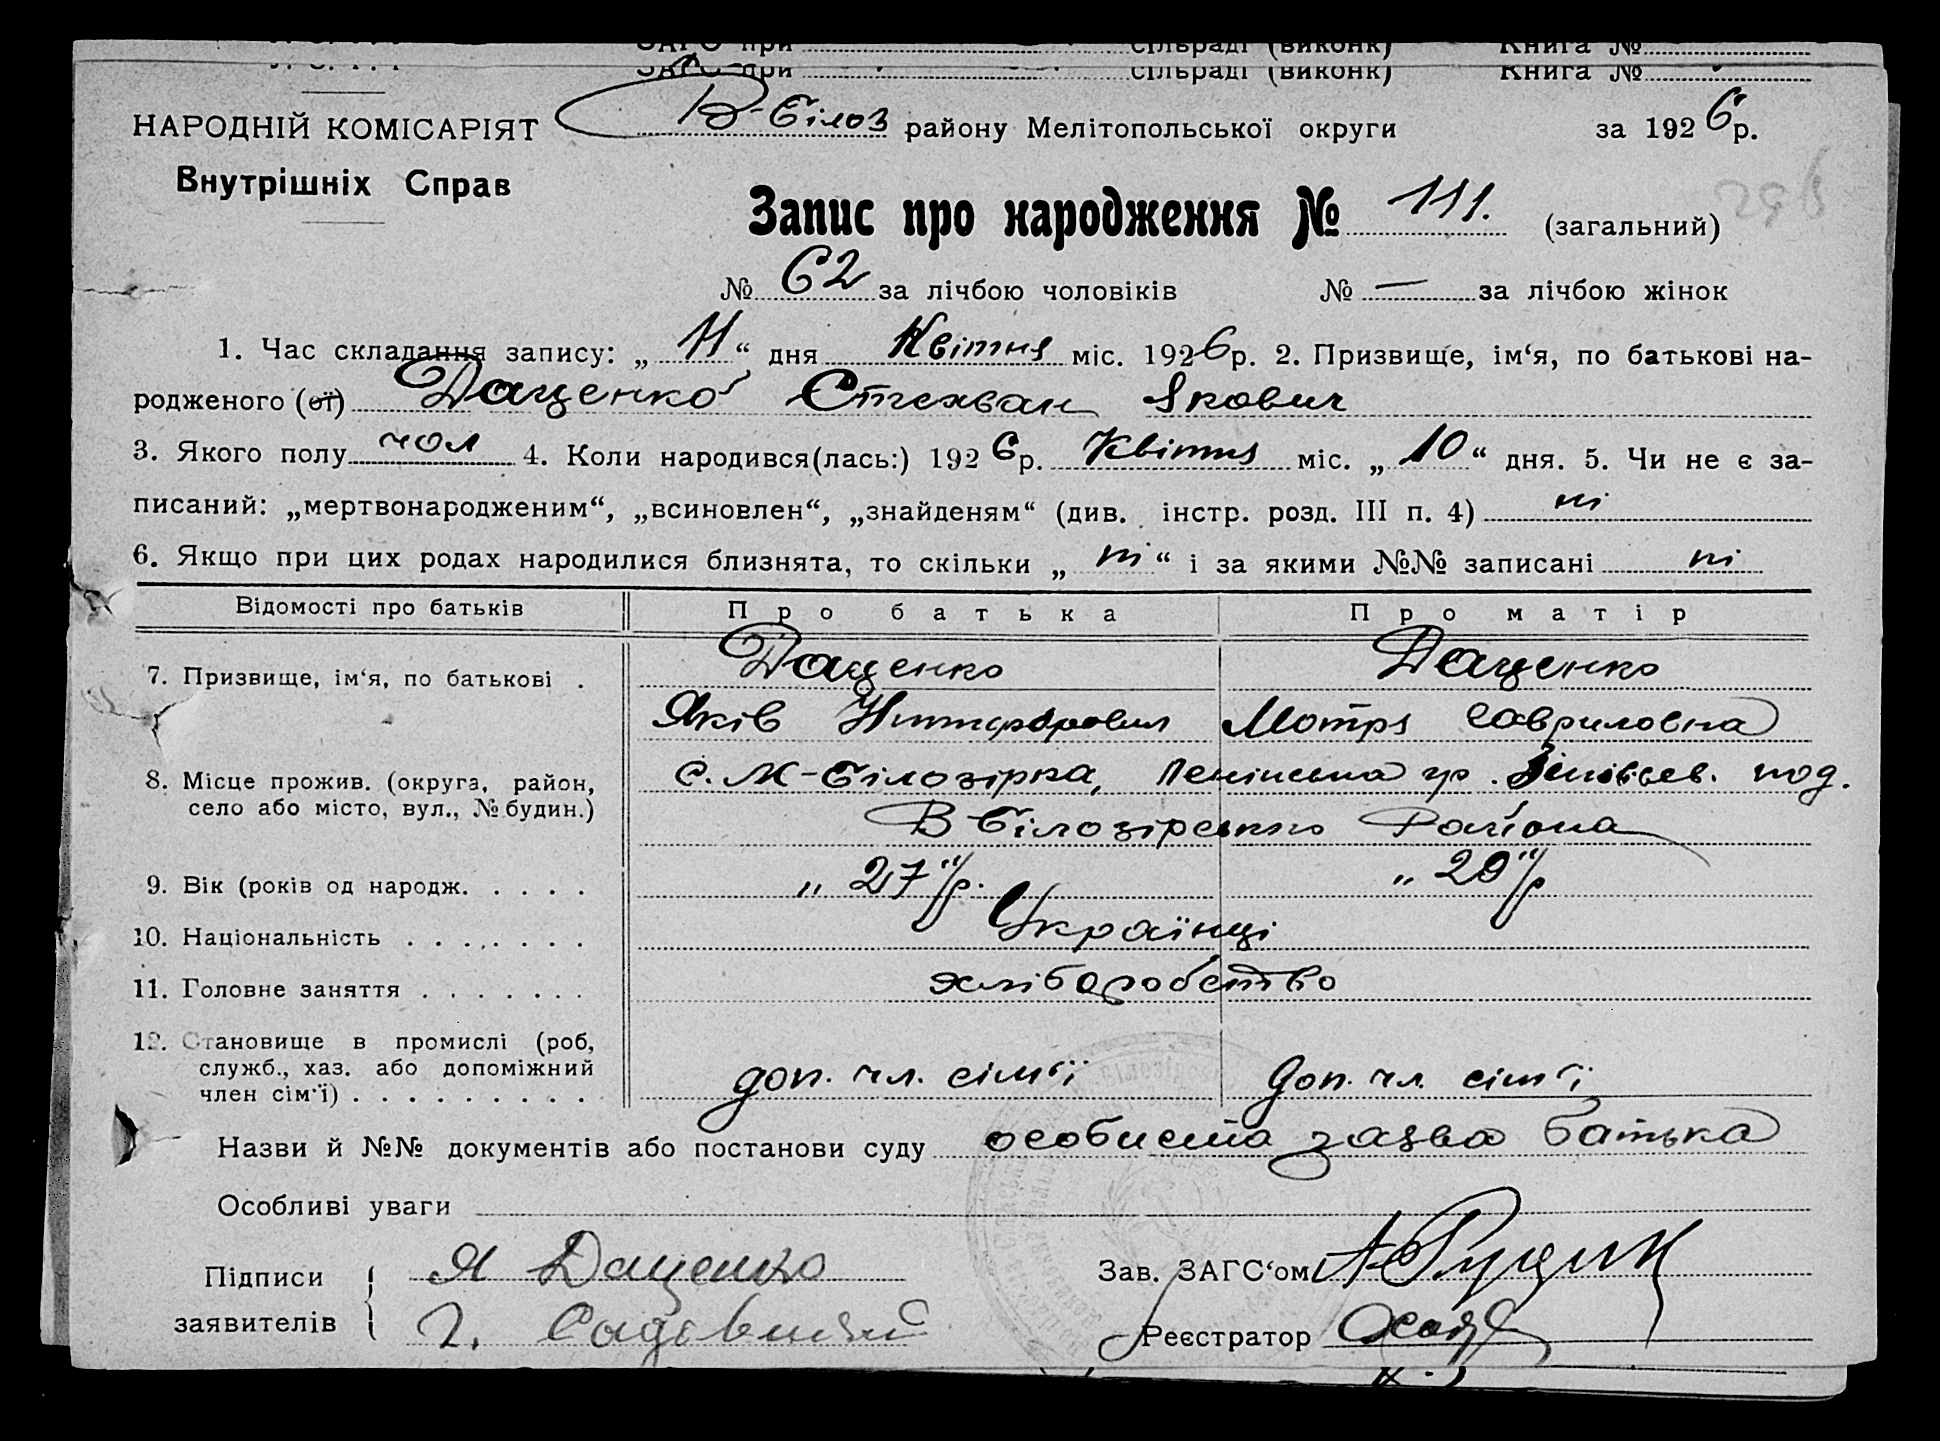 ЗАГС при сільраді (виконк) Книга №
ЗАГС при сільраді (виконк) Книга №
НАРОДНІЙ КОМІСАРІЯТ В-Білоз району Мелітопольської округи за 1926р.
Внутрішніх Справ
Запис про народження № 111. (загальний)
№ 62 за лічбою чоловіків № — за лічбою жінок
1. Час складання запису: „ 11 “ дня Квітня міс. 1926р. 2. Призвище, ім‘я, по батькові на-
родженого (ої) Даценко Стехван Якович
3. Якого полу чол 4. Коли народився(лась:) 1926р. Квітня міс. „ 10 “ дня. 5. Чи не є за-
писаний: „мертвонародженим“, „всиновлен“, „знайденям“ (див. інстр. розд. III п. 4) ні
6. Якщо при цих родах народилися близнята, то скільки „ ні “ і за якими №№ записані ні
Відомості про батьків Про батька Про матір
7. Призвище, ім‘я, по батькові . Даценко Даценко
Яків Никифорович Мотря Гавриловна
8. Місце прожив. (округа, район, с. М-Білозірка, Ленінська
село або місто, вул., № будин.) В Білозірського Района
9. Вік (років од народж. . . . . „ 27 “ р. „ 20 “ р
10. Національність . . . . . . . Українці
11. Головне заняття . . . . . . . хліборобство
12. Становище в промислі (роб,
служб., хаз. або допоміжний доп. чл. сім‘ї доп. чл. сім‘ї
член сім‘ї) . . . . . . . . . .
Назви й №№ документів або постанови суду особиста заява батька
Особливі уваги
Підписи Я Даценко Зав. ЗАГС‘ом
заявителів Г. Садовничий Реєстратор